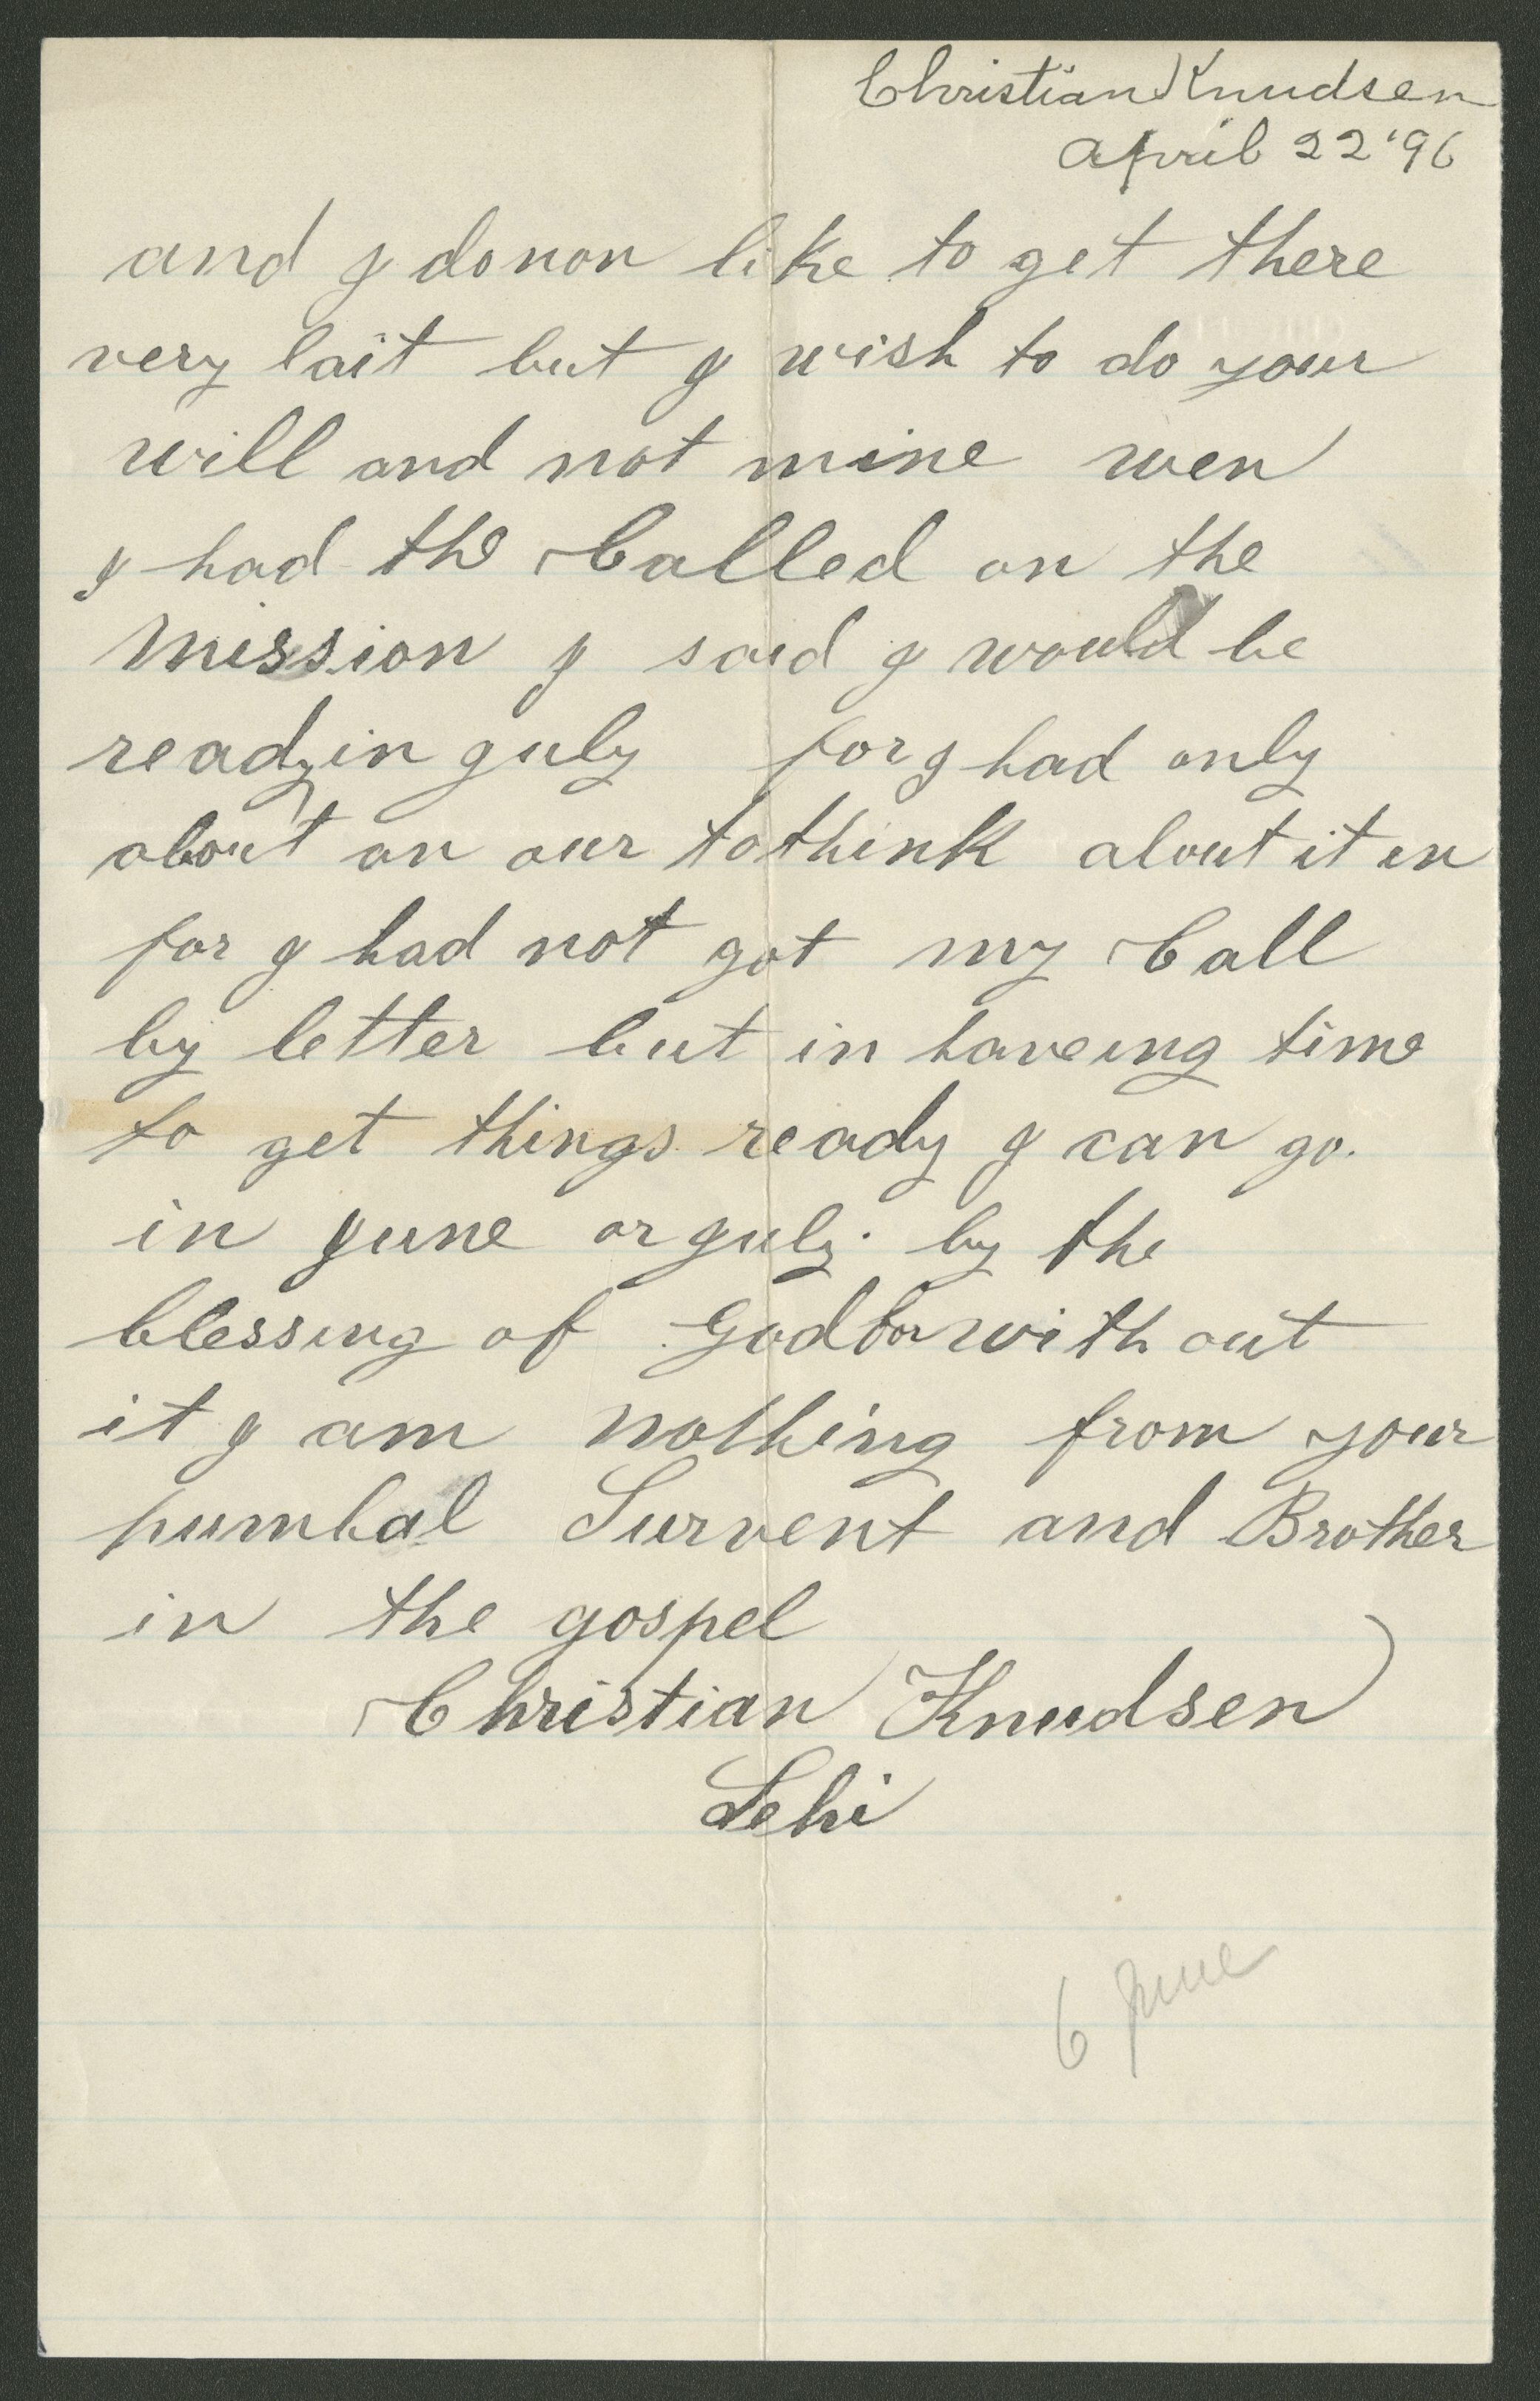 Christian Knudsen
April 22 '96
and I do non like to get there
very lait but I wish to do your
will and not mine wen
I had the Called on the
Mission I said I would be
ready in July for I had only
about an our to think about it in
for I had not got my Call
by letter but in haveing time
to get things ready I can go.
in June or July. by the
blessing of God for with out
it I am nothing from your
humbal Survent and Brother
in the gospel
Christian Knudsen
Lehi
6 June